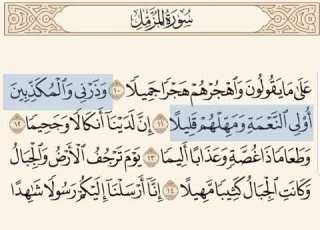 سُورَةُ المُزَّمِّل
عَلَىٰ مَا يَقُولُونَ وَٱهْجُرْهُمْ هَجْرًا جَمِيلًا ١٠ وَذَرْنِى وَٱلْمُكَذِّبِينَ
أُو۟لِى ٱلنَّعْمَةِ وَمَهِّلْهُمْ قَلِيلًا ١١ إِنَّ لَدَيْنَآ أَنكَالًا وَجَحِيمًا ١٢
وَطَعَامًا ذَا غُصَّةٍ وَعَذَابًا أَلِيمًا ١٣ يَوْمَ تَرْجُفُ ٱلْأَرْضُ وَٱلْجِبَالُ
وَكَانَتِ ٱلْجِبَالُ كَثِيبًا مَّهِيلًا ١٤ إِنَّآ أَرْسَلْنَآ إِلَيْكُمْ رَسُولًا شَٰهِدًا